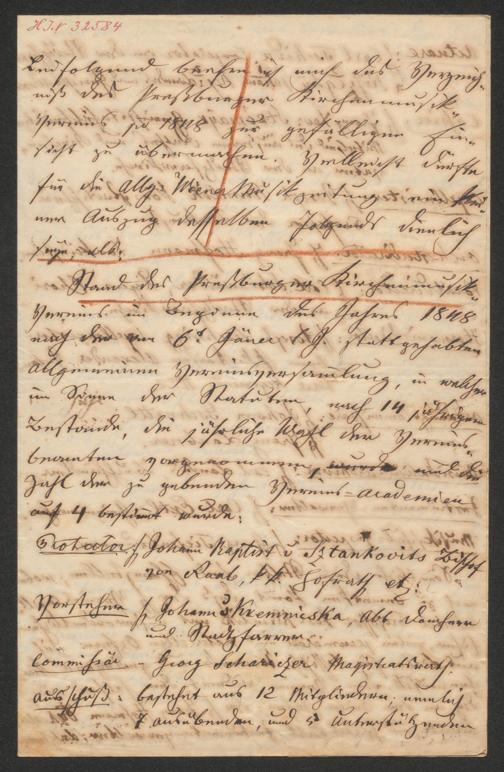 H.I.N 32584
Beifolgend beehre ich mich das Verzeich-
niß des Preßburger Kirchenmusik-
Vereins pr 1848 zur gefälligen Ein-
sicht zu übermachen. Vielleicht dürfte
für die Allg. Wiener Musikzeitung ein klei-
ner Auszug desselben folgends dienlich
seyn als:
Stand des Preßburger Kirchenmusik-
Vereins im Beginne des Jahres 1848
nach der am 6t Jäner d J. stattgehabten
allgemeinen Vereinsversamlung, in welcher
im Sinne der Statuten, nach 14 jährigem
Bestande, die jährliche Wahl der Vereins-
beamten vorgenommen, und die
Zahl der zu gebenden Vereins-academien
auf 4 bestimt wurde:
Protector Johann Baptist v Sztankovits Bischof
von Raab, Hofrath etc:
Vorsteher Johann Kremnicska, Abt, Domherr
und Stadtpfarrer.
Commissär - Georg Scharitzer Magistratsrath.
Ausschuß: bestehet aus 12 Mitgliedern, nemlich
7 ausübenden, und 5 Unterstützenden